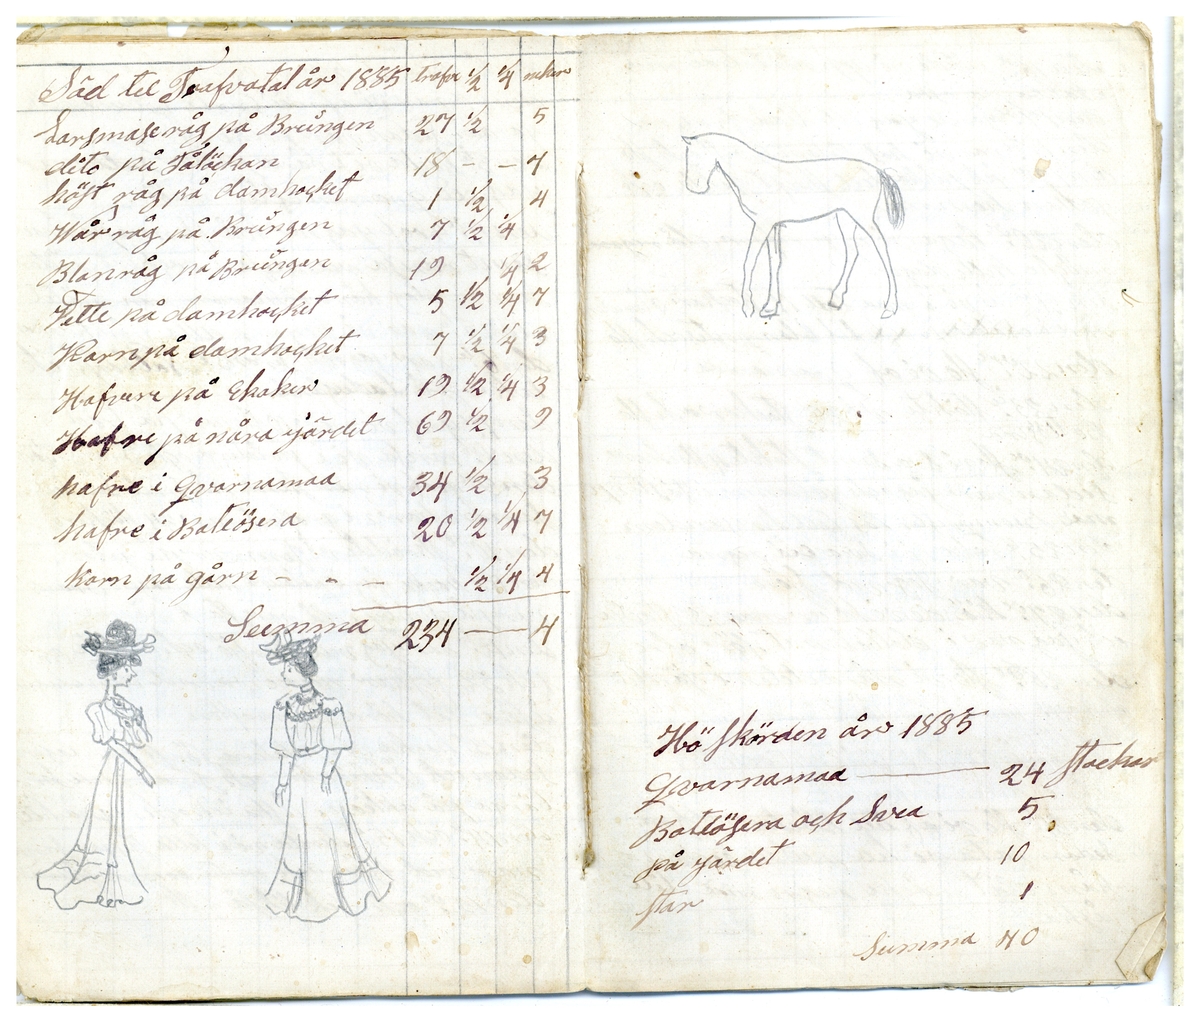 Säd til Trafvatal år 1885 trafvar 1/2 1/4 nekar
Larsmase råg på Brüngen 27 1/2 5
dito på 18 - - 7
höst råg på damhocket 1 1/2 4
Wår råg på Brüngen 7 1/2 1/4
Blanråg på Brüngen 19 1/4 2
Vette på damhocket 5 1/2 1/4 7
Korn på damhocket 7 1/2 1/4 3
Hafvere på Ekaker 19 1/2 1/4 3
Hafre på nåra gärdet 69 1/2 9
hafre i Qvarnamaa 34 1/2 3
hafre i Batlösera 20 1/2 1/4 7
Korn på gårn - - - 1/2 1/4 4
Summa 234 — 4
Hö skörden år 1885
Qvarnamaa — 24 stackar
Batlösera och Svea 5
på gärdet 10
star 1
Summa 40